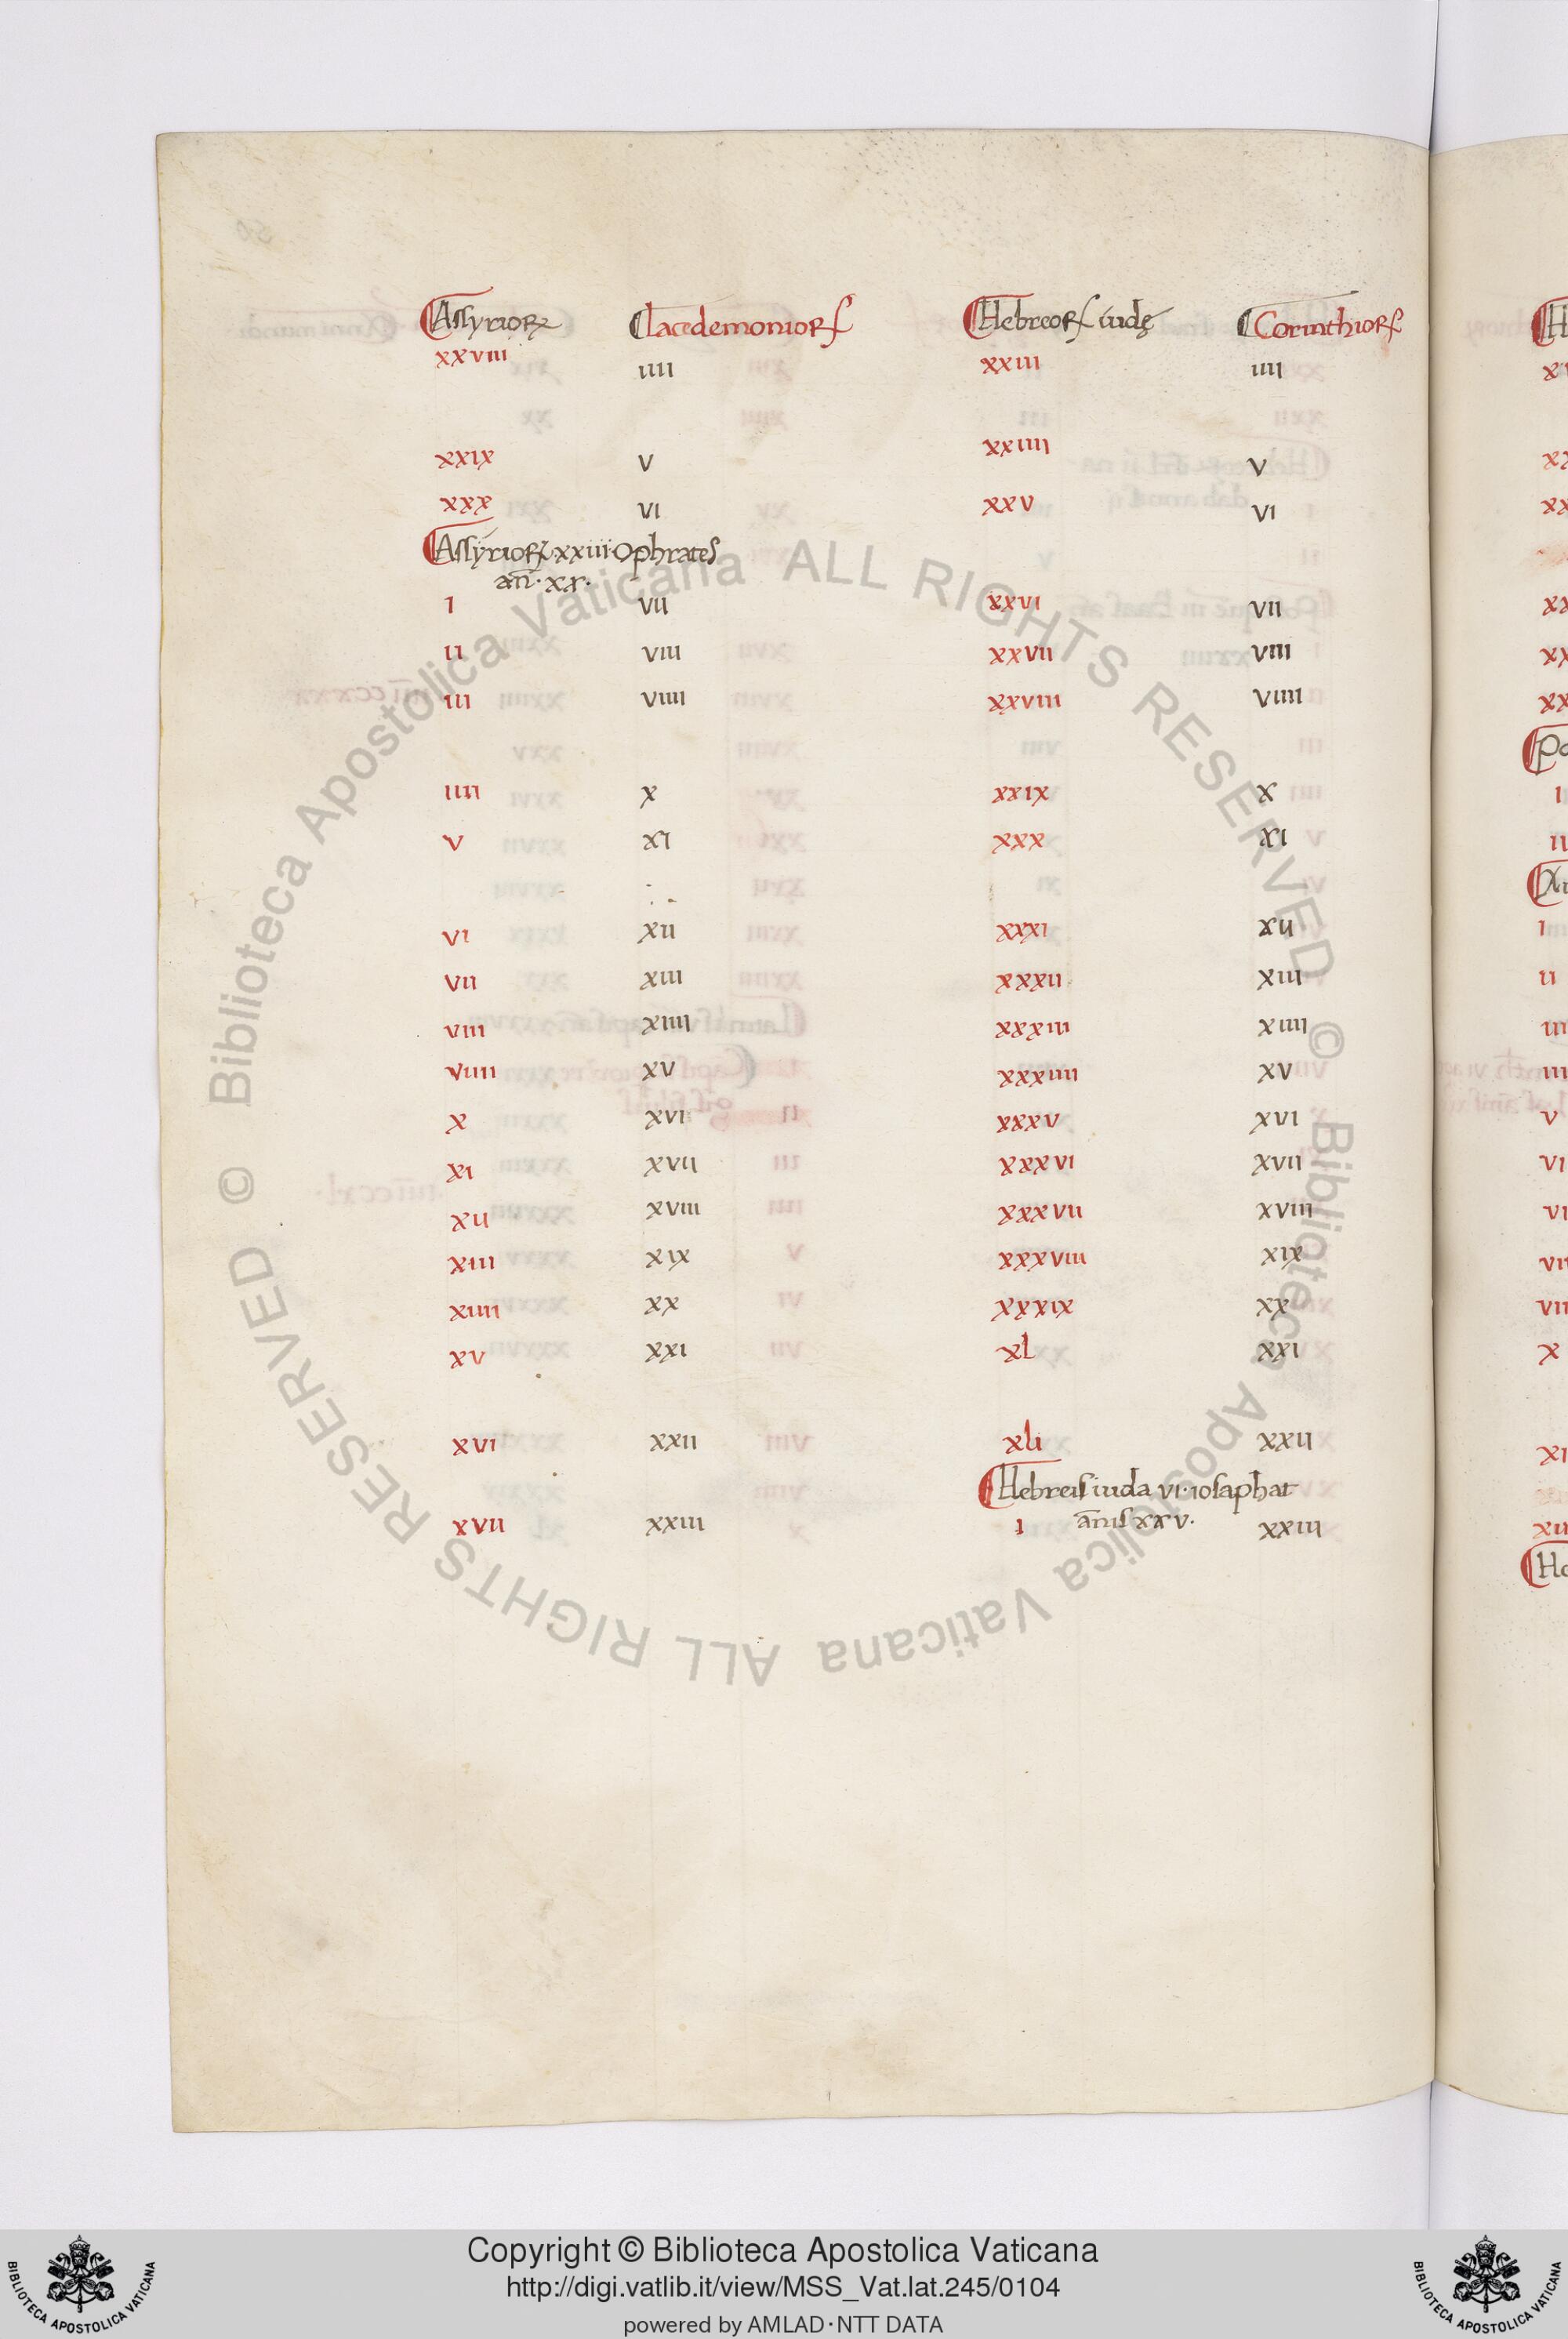 Assyrioꝝ Lacedemonioꝝ Hebreoꝝ iudę Corinthioꝝ
xxviii iiii xxiii iiii
xxix v xxiiii v
xxx vi xxv vi
Assyrioꝝ·xxiii·Ophrates
an̄·xx·
i vii xxvi vii
ii viii xxvii viii
iii viiii xxviii viiii
iiii x xxix x
v xi xxx xi
vi xii xxxi xii
vii xiii xxxii xiii
viii xiiii xxxiii xiiii
viiii xv xxxiiii xv
x xvi xxxv xvi
xi xvii xxxvi xvii
xii xviii xxxvii xviii
xiii xix xxxviii xix
xiiii xx xxxix xx
xv xxi xl xxi
xvi xxii xli xxii
Hebreis iuda vi·iosaphat
ann̄is xxv·
xvii xxiii i xxiii
© Biblioteca Apostolica Vaticana ALL RIGHTS RESERVED © Biblioteca Apostolica Vaticana ALL RIGHTS RESERVED
Copyright © Biblioteca Apostolica Vaticana
http://digi.vatlib.it/view/MSS_Vat.lat.245/0104
powered by AMLAD·NTT DATA
BIBLIOTECA APOSTOLICA VATICANA
BIBLIOTECA APOSTOLICA VATICANA